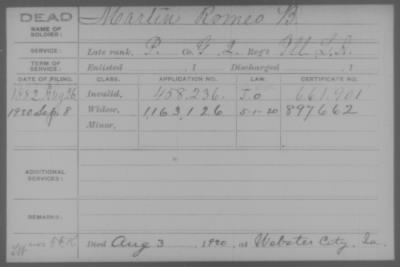 DEAD
NAME OF SOLDIER: Martin Romeo B.
SERVICE: Late rank, P. Co. G 2, Reg't M. S. S.
TERM OF SERVICE: Enlisted , 1 Discharged , 1
DATE OF FILING. CLASS. APPLICATION NO. LAW. CERTIFICATE NO.
1882 Aug 26 Invalid, 458,236. 661,901
1920 Sep 8 Widow, 1,163,126 5-1-20 897662
Minor,
ADDITIONAL SERVICES:
REMARKS:
Died Aug 3, 1920, at Webster City, Ia.